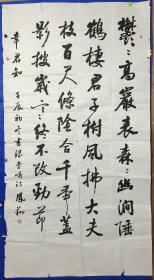 鬱〻高巖表森〻幽澗陲
鶴棲君子樹風拂大夫
枝百尺條陰合千年蓋
影披歲寒終不改勁節
幸君知
壬辰初冬書錄李嶠詩